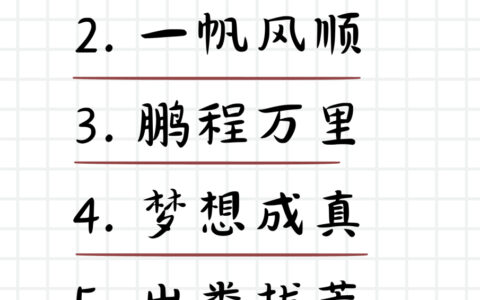 2. 一帆风顺
3. 鹏程万里
4. 梦想成真
5. 出类拔萃